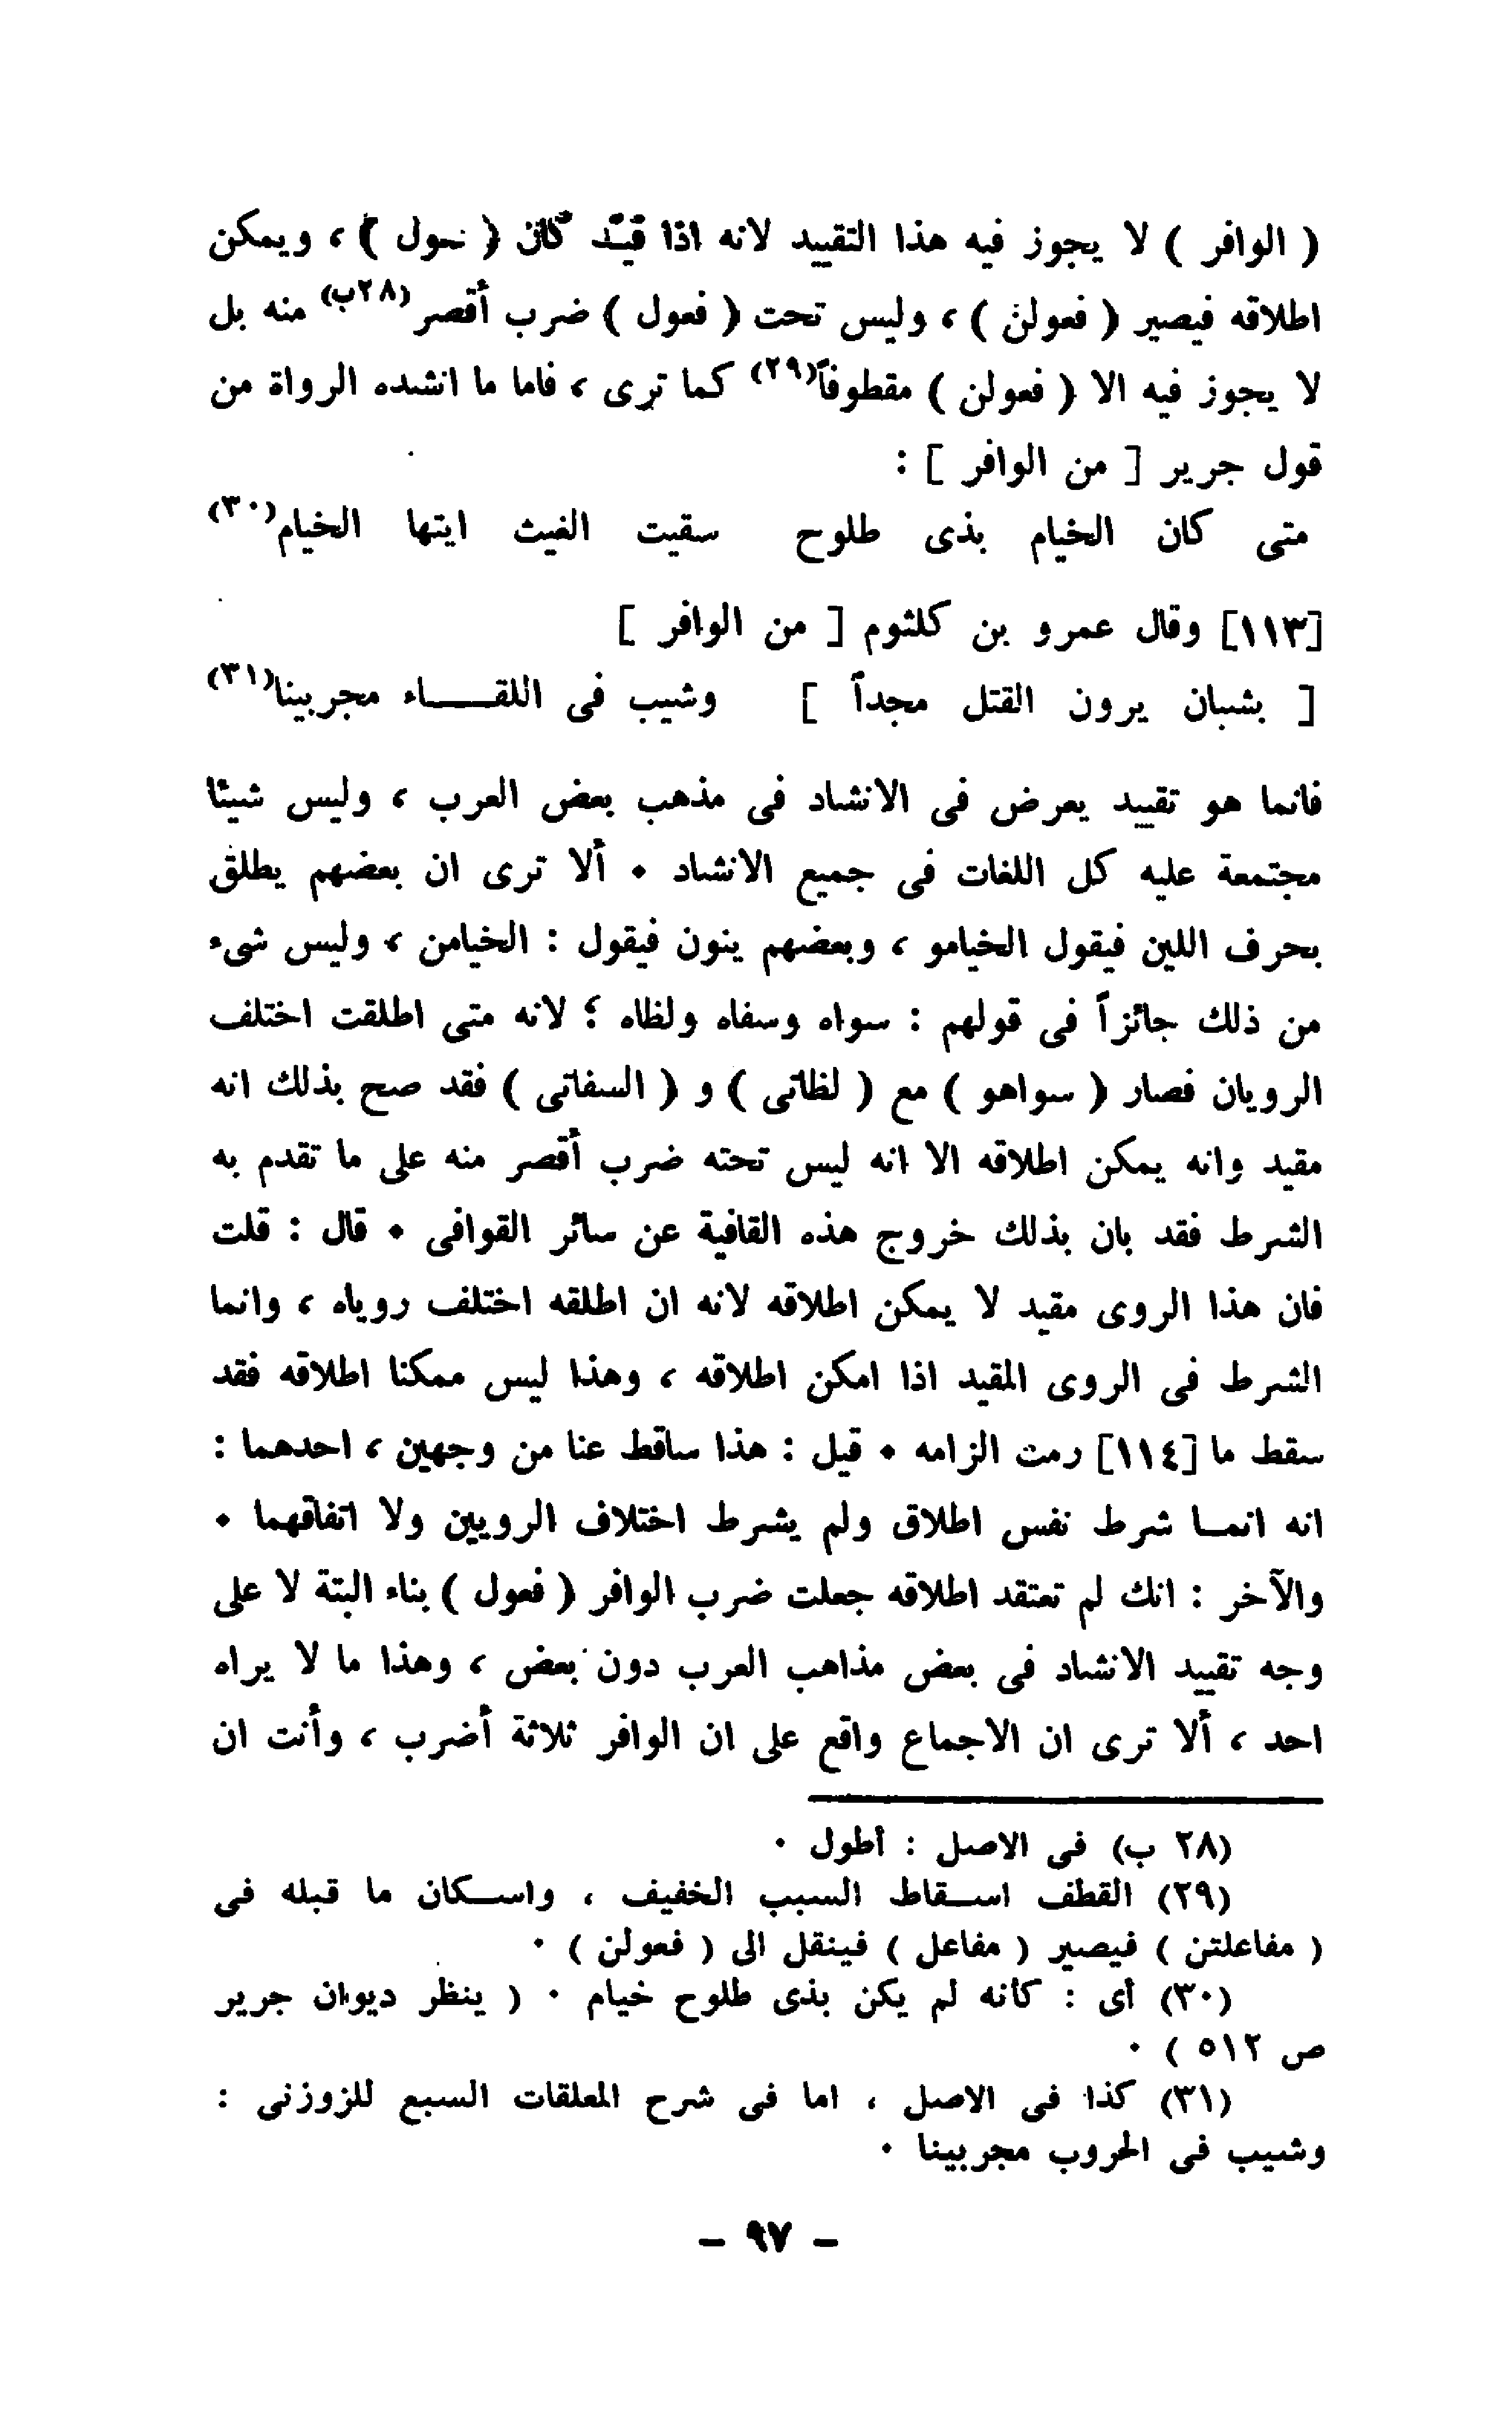 ( الوافر ) لا يجوز فيه هذا التقييد لانه اذا قيد كان ( فعول ) ، ويمكن
اطلاقه فيصير ( فعولن ) ، وليس تحت ( فعول ) ضرب أقصر(٢٨ب) منه بل
لا يجوز فيه الا ( فعولن ) مقطوفاً(٢٩) كما ترى ، فاما ما انشده الرواة من
قول جرير [ من الوافر ] :
متى كان الخيام بذى طلوح سقيت الغيث ايتها الخيام(٣٠)
[١١٣] وقال عمرو بن كلثوم [ من الوافر ]
[ بشبان يرون القتل مجداً ] وشيب فى اللقـــاء مجربينا(٣١)
فانما هو تقييد يعرض فى الانشاد فى مذهب بعض العرب ، وليس شيئا
مجتمعة عليه كل اللغات فى جميع الانشاد ٠ ألا ترى ان بعضهم يطلق
بحرف اللين فيقول الخيامو ، وبعضهم ينون فيقول : الخيامن ، وليس شىء
من ذلك جائزاً فى قولهم : سواه وسفاه ولظاه ؟ لانه متى اطلقت اختلف
الرويان فصار ( سواهو ) مع ( لظاتى ) و ( السفاتى ) فقد صح بذلك انه
مقيد وانه يمكن اطلاقه الا انه ليس تحته ضرب أقصر منه على ما تقدم به
الشرط فقد بان بذلك خروج هذه القافية عن سائر القوافى ٠ قال : قلت
فان هذا الروى مقيد لا يمكن اطلاقه لانه ان اطلقه اختلف روياه ، وانما
الشرط فى الروى المقيد اذا امكن اطلاقه ، وهذا ليس ممكنا اطلاقه فقد
سقط ما [١١٤] رمت الزامه ٠ قيل : هذا ساقط عنا من وجهين ، احدهما :
انه انمـا شرط نفس اطلاق ولم يشرط اختلاف الرويين ولا اتفاقهما ٠
والآخر : انك لم تعتقد اطلاقه جعلت ضرب الوافر ( فعول ) بناء البتة لا على
وجه تقييد الانشاد فى بعض مذاهب العرب دون بعض ، وهذا ما لا يراه
احد ، ألا ترى ان الاجماع واقع على ان الوافر ثلاثة أضرب ، وأنت ان
(٢٨ ب) فى الاصل : أطول ٠
(٢٩) القطف اسـقاط السبب الخفيف ، واسـكان ما قبله فى
( مفاعلتن ) فيصير ( مفاعل ) فينقل الى ( فعولن ) ٠
(٣٠) أى : كأنه لم يكن بذى طلوح خيام ٠ ( ينظر ديوان جرير
ص ٥١٢ ) ٠
(٣١) كذا فى الاصل ، اما فى شرح المعلقات السبع للزوزنى :
وشيب فى الحروب مجربينا ٠
– ٩٧ –